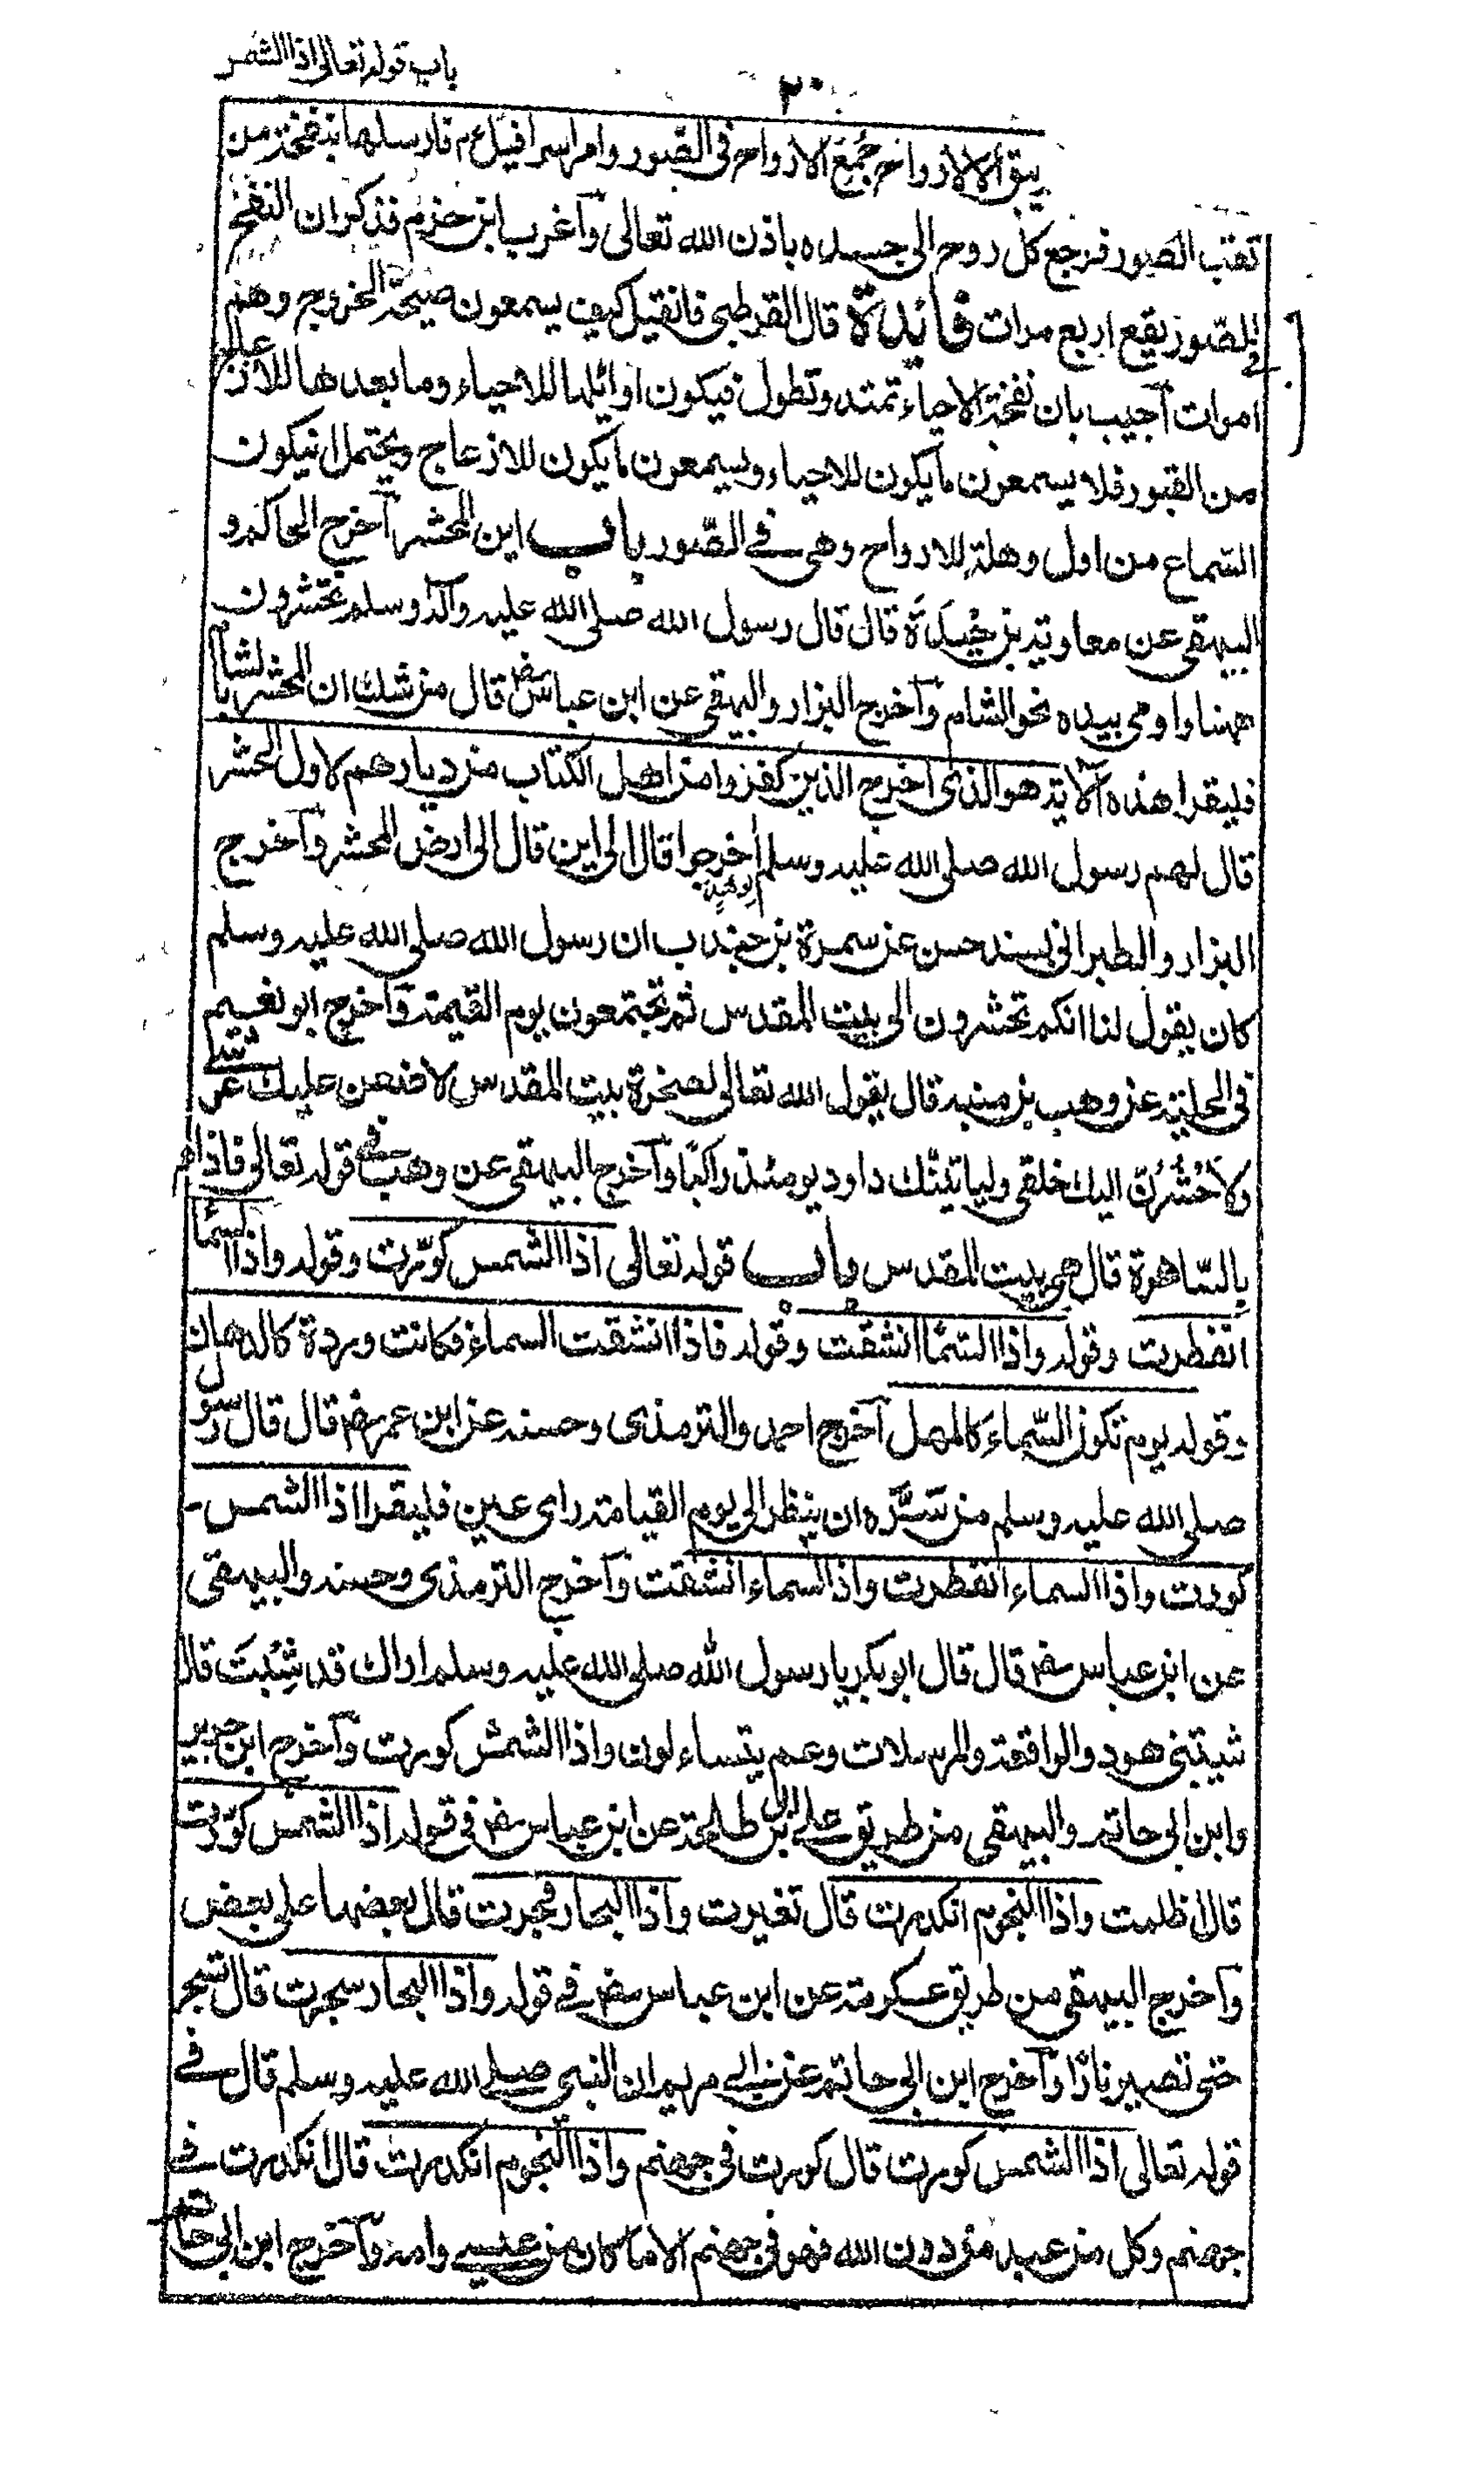 باب قوله تعالى اذا الشمس
٢٠
يبق الا الارواح جُمِعَ الارواح فى الصّور وامر اسرافيل عم فارسلها بنفخة من
تقب الصور فرجع كل روح الى جسده باذن الله تعالى وآغرب ابن حزم فذكر ان النفخ
فى الصّور يقع اربع مرات فائدة قال القرطبى فان قيل كيف يسمعون صيحة الخروج وهم
اموات آجيب بان نفخة الاحياء تمتد وتطول فيكون اوائلها للاحياء وما بعدها للازعاج
من القبور فلا يسمعون ما يكون للاحياء ويسمعون ما يكون للازعاج ويحتمل ان يكون
السّماع من اول وهلة للارواح وهى فے الصّور باب اين المحشر آخرج الحاكم و
البيهقى عن معاوية بن حَيْدَة قال قال رسول الله صلى الله عليه وآله وسلم تحشرون
ههنا واومى بيده نحو الشام وآخرج البزار والبيهقى عن ابن عباس رض قال من شك ان المحشر بالشام
فليقرا هذه الآية هو الذى اخرج الذين كفروا من اهل الكتاب من ديارهم لاول الحشر
قال لهم رسول الله صلى الله عليه وسلم اخرجوا قال الى اين قال الى ارض المحشر وآخرج
البزار والطبرانى بسند حسن عن سمرة بن جندب ان رسول الله صلى الله عليه وسلم
كان يقول لنا انكم تحشرون الى بيت المقدس ثم تجتمعون يوم القيمة وآخرج ابو نعيم
فى الحلية عن وهب بن منبه قال يقول الله تعالى لصخرة بيت المقدس لاضعن عليك عرشے
ولاَحْشُرَنّ اليك خلقى ولياتينّك داود يومئذ راكبا وآخرج البيهقى عن وهب فے قوله تعالى فاذا هم
بالسّاهرة قال هى بيت المقدس باب قوله تعالى اذا الشمس كوّرت وقوله واذا السّما
انفطرت وقوله واذا السّما انشقت وقوله فاذا انشقت السماء فكانت وردة كالدهان
وقوله يوم تكون السّماء كالمهل آخرج احمد والترمذى وحسنه عن ابن عمر رض قال قال رسول
صلى الله عليه وسلم من سَرَّه ان ينظر الى يوم القيامة راى عين فليقرا اذا الشمس
كورت واذا السماء انفطرت واذا السماء انشقت وآخرج الترمذى وحسنه والبيهقى
عن ابن عباس رض قال قال ابو بكر يا رسول الله صلى الله عليه وسلم اراك قد شِبْتَ قال
شيبتنى هود والواقعة والمرسلات وعم يتساءلون واذا الشمس كورت وآخرج ابن جرير
وابن ابى حاتم والبيهقى من طريق على بن ابى طلحة عن ابن عباس رض فى قوله اذا الشمس كوّرت
قال اظلمت واذا النجوم انكدرت قال تغيرت واذا البحار فجرت قال بعضها على بعض
وآخرج البيهقى من طريق عكرمة عن ابن عباس رض فے قوله واذا البحار سجرت قال تسجر
حتى تصير نارًا وآخرج ابن ابى حاتم عن ابى مريم ان النبى صلے الله عليه وسلم قال فے
قوله تعالى اذا الشمس كورت قال كورت فى جهنم واذا النجوم انكدرت قال انكدرت فے
جهنم وكل من عبد من دون الله فهو فى جهنم الا ما كان من عيسے وامه وآخرج ابن ابى حاتم